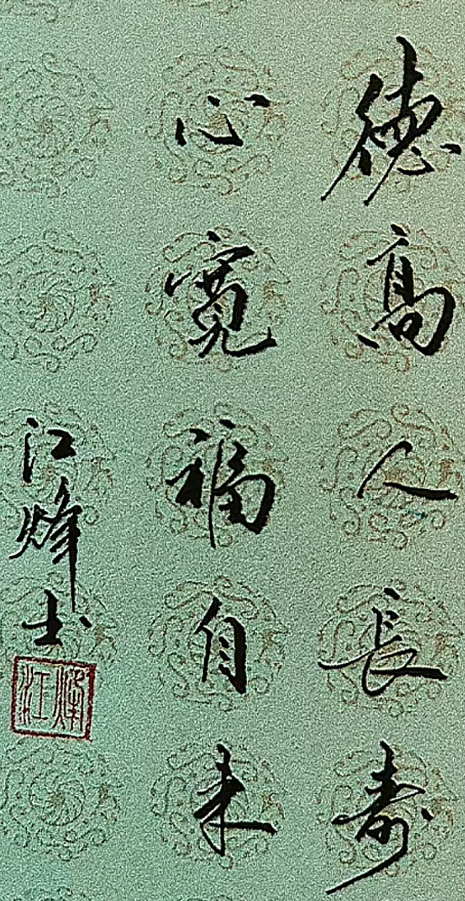 德高人長寿
心寬福自来
江烽书
江烽